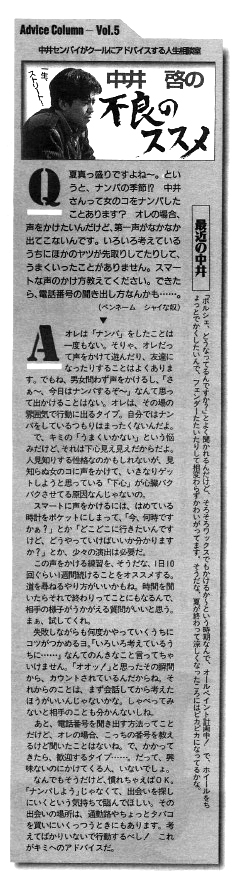 Advice Column — Vol.5
中井センパイがクールにアドバイスする人生相談室
一生、
ストリート。
中井 啓の
不良の
ススメ
Q
夏真っ盛りですよね〜。とい
うと、ナンパの季節!? 中井
さんって女のコをナンパした
ことあります? オレの場合、
声をかけたいんだけど、第一声がなかなか
出てこないんです。いろいろ考えている
うちにほかのヤツが先取りしてたりして、
うまくいったことがありません。スマー
トな声のかけ方教えてください。できた
ら、電話番号の聞き出し方なんかも……。
(ペンネーム シャイな奴)
A
オレは「ナンパ」をしたことは
一度もない。そりゃ、オレだっ
て声をかけて遊んだり、友達に
なったりすることはよくありま
す。でもね、男女問わず声をかけるし、「さ
ぁ〜、今日はナンパするぞ〜」なんて思っ
て出かけることはない。オレは、その場の
雰囲気で行動に出るタイプ。自分ではナン
パをしているつもりはまったくないんだよ。
で、キミの「うまくいかない」という悩
みだけど、それは下心見え見えだからだよ。
人見知りする性格なのかもしれないが、見
知らぬ女のコに声をかけて、いきなりゲッ
トしようと思っている「下心」が心臓バク
バクさせてる原因なんじゃないの。
スマートに声をかけるには、はめている
時計をポケットにしまって、「今、何時です
かぁ?」とか「どこどこに行きたいんです
けど、どうやっていけばいいか分かります
か?」とか、少々の演出は必要だ。
この声をかける練習を、そうだな、1日10
回ぐらい1週間続けることをオススメする。
道を尋ねるやり方がいいかもね。時間を聞
いたらそれで終わりってことにもなるんで、
相手の様子がうかがえる質問がいいと思う。
まぁ、試してくれ。
失敗しながらも何度かやっていくうちに
コツがつかめるヨ。「いろいろ考えているう
ちに……」なんてのんきなこと言ってちゃ
いけません。「オオッ!」と思ったその瞬間
から、カウントされているんだからね。そ
れからのことは、まず会話してから考えた
ほうがいいんじゃないかな。しゃべってみ
ないと相手のことも分かんないしね。
あと、電話番号を聞き出す方法ってこと
だけど、オレの場合、こっちの番号を教え
るけど聞いたことはないね。で、かかって
きたら、歓迎するタイプ……。だって、興
味ないのにかけてくる人、いないでしょ。
なんでもそうだけど、慣れちゃえばOK。
「ナンパしよう」じゃなくて、出会いを探し
にいくという気持ちで臨んでほしい。その
出会いの場所は、通勤路やちょっとタバコ
を買いにいくっつうときにもあります。考
えてばかりいないで行動するべし! これ
がキミへのアドバイスだ。
最近の中井